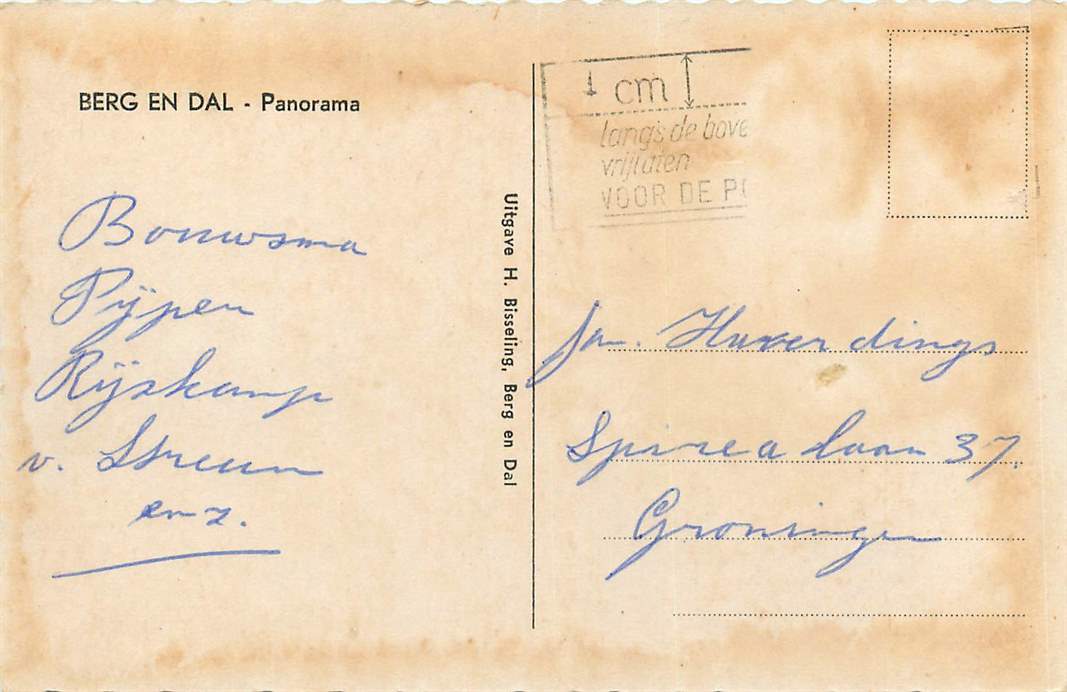 BERG EN DAL - Panorama
4 cm
langs de bove
vrijlaten
VOOR DE PO
Bouwsma
Pijpen
Rijskamp
v. Streun
enz.
Uitgave H. Bisseling, Berg en Dal
fam. Huverdings
Spirealaan 37.
Groningen